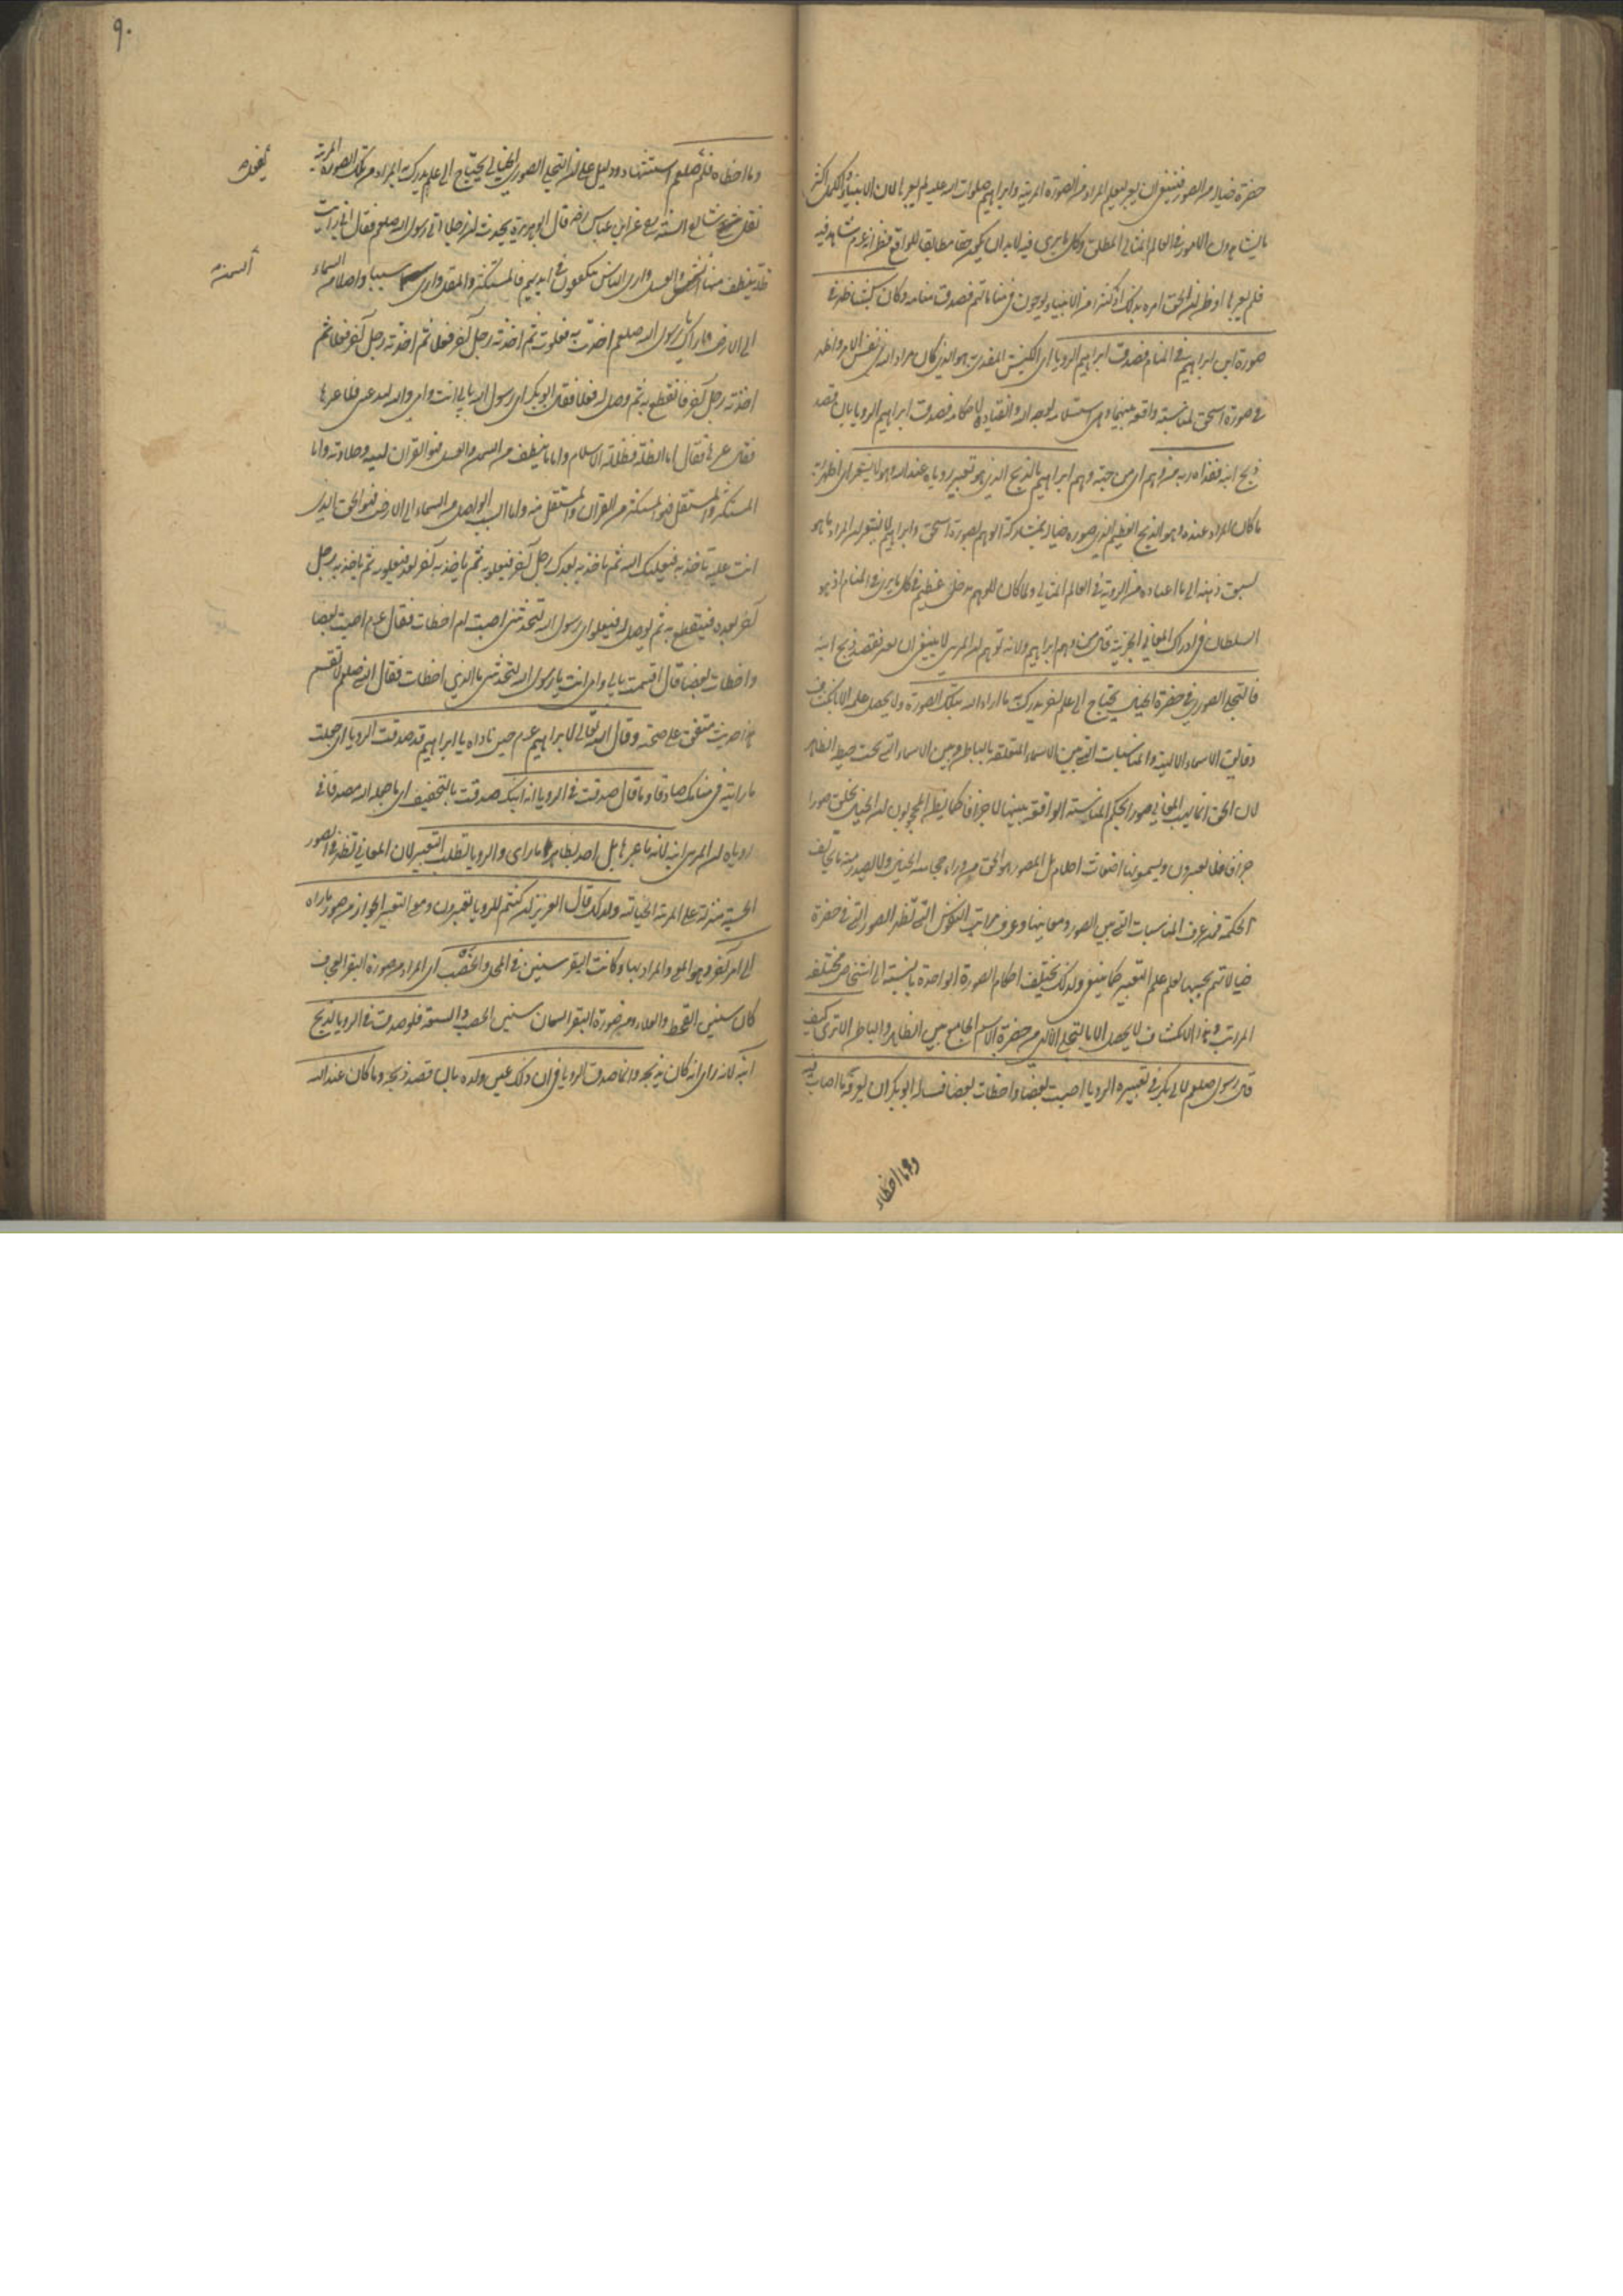 حضرة خياله من الصور فينبغي ان يعبر ليعلم المراد من الصورة المرئية وابراهيم صلوات الله عليه لم يعبرها لان الانبياء والكمل اكثر
ما يشاهدون الامور في العالم المثالي المطلق وكل ما يرى فيه لابد ان يكون حقا مطابقا للواقع فظن انه عم شاهد فيه
فلم يعبرها او ظن ان الحق امره بذلك اذ كثيرا من الانبياء يوحون في مناماتهم فصدق منامه وكان كبش ظهر في
صورة ابن ابراهيم في المنام فصدق ابراهيم الرويا اي الكبش المفدى به هو الذي كان مراد الله في نفس الامر وظهر
في صورة اسحق لمناسبة واقعة بينهما وهي استسلامه لوجه الله وانقياده لاحكامه فصدق ابراهيم الرويا بان قصد
ذبح ابنه ففداه ربه من وهم اي من جهة وهم ابراهيم بالذبح الذي هو تعبير روياه عند الله وهو لا يشعر اي اظهر ان
ما كان المراد عنده وهو الذبح العظيم الذي صوره خياله بمشاركة الوهم بصورة اسحق وابراهيم لا يشعر ان المراد ما هو
لسبق ذهنه الى ما اعتاده من الروية في العالم المثالي ولما كان للوهم مدخل عظيم في كل ما يرى في المنام اذ هو
السلطان في ادراك المعاني الجزئية قال من وهم ابراهيم ولانه توهم ان المرئي لا ينبغي ان يعبر فقصد ذبح ابنه
فالتجلي الصوري في حضرة الخيال يحتاج الى علم اخر يدرك به ما اراد الله بتلك الصورة ولا يحصل علمه الا بانكشاف
دقايق الاسماء الالهية والمناسبات التي بين الاسماء المتعلقة بالباطن وبين الاسماء التي تحت حيطة الظاهر
لان الحق انما يهب المعاني صورا بحكم المناسبة الواقعة بينهما لا جزافا كما يظن المحجوبون ان الخيال يخلق صورا
جزافا فلا يعتبرون ويسمونها اضغاث احلام بل المصور هو الحق من وراء حجابية الخيال ولا يصدر منه ما يخالف
الحكمة فمن عرف المناسبات التي بين الصور ومعانيها وعرف مراتب النفوس التي تظهر الصور التي في حضرة
خيالاتهم بحسبها يعلم علم التعبير كما ينبغي ولذلك يختلف احكام الصورة الواحدة بالنسبة الى اشخاص مختلفة
المراتب وهذا الانكشاف لا يحصل الا بالتجلي الالهي من حضرة الاسم الجامع بين الظاهر والباطن الا ترى كيف
قال رسول صلعم لابي بكر في تعبيره الرويا اصبت بعضا واخطات بعضا فساله ابو بكر ان يعرفه ما اصاب فيه
وما اخطاء
٩٠
وما اخطاء فلم يفعل صلعم استشهاد ودليل على ان التجلي الصوري الخيالي يحتاج الى علم يدرك به المراد من تلك الصورة المرئية
يفعل
نقل شارح السنة عن ابن عباس رض قال ابو هريرة يحدث ان رجلا اتى رسول الله صلعم فقال اني رايت
ظلة ينطف منها السمن والعسل وارى الناس يتكففون في ايديهم فالمستكثر والمستقل وارى سببا واصلا من السماء
السمن
الى الارض فاراك يا رسول الله صلعم اخذت به فعلوت ثم اخذ به رجل اخر فعلا ثم اخذ به رجل اخر فعلا ثم
اخذ به رجل اخر فانقطع به ثم وصل له فعلا فقال ابو بكر اي رسول الله بابي انت وامي والله لتدعني فلاعبرها
فقال عبرها فقال اما الظلة فظلة الاسلام واما ما ينطف من السمن والعسل فهو القران لينه وحلاوته واما
المستكثر والمستقل فهو المستكثر من القران والمستقل منه واما السبب الواصل من السماء الى الارض فهو الحق الذي
انت عليه تاخذ به فيعليك الله ثم ياخذ به بعدك رجل اخر فيعلو به ثم ياخذ به اخر بعد فيعلو به ثم ياخذ به رجل
اخر بعده فينقطع به ثم يوصل له فيعلو اي رسول الله لتحدثني اصبت ام اخطات فقال عم اصبت بعضا
واخطات بعضا قال اقسمت بابي وامي انت يا رسول الله لتحدثني ما الذي اخطات فقال النبي صلعم لا تقسم
هذا حديث متفق على صحته وقال الله تعالى لابراهيم عم حين ناداه يا ابراهيم قد صدقت الرويا اي جعلت
ما رايته في منامك صادقا وما قال صدقت في الرويا انه ابنك صدقت بالتخفيف اي ما جعله الله مصدقا في
روياه ان المرئي ابنه لانه ما عبرها بل اخذ بظاهر ما راى والرويا تطلب التعبير لان المعاني تظهر في الصور
الحسية منزلة على المرتبة الخيالية ولذلك قال العزيز ان كنتم للرويا تعبرون ومعنى التعبير الجواز من صورة ما راه
الى امر اخر وهو المعنى والمراد بها وكانت البقر سنين في المحل والخصب اي المراد من صورة البقر العجاف
كان سنين القحط والغلا ومن صورة البقر السمان سنين الخصب والسعة فلو صدق في الرويا لذبح
ابنه لانه راى انه كان يذبحه وانما صدق الرويا في ان ذلك عين ولده بان قصد ذبحه وما كان عند الله